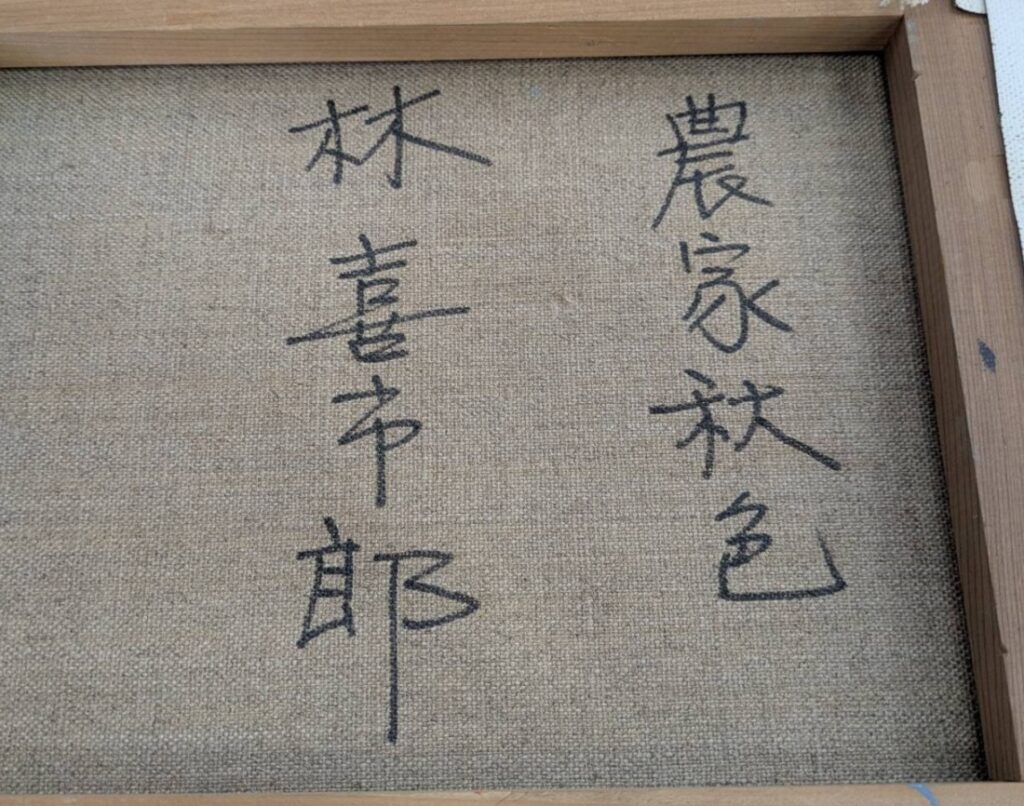 農家秋色
林喜市郎